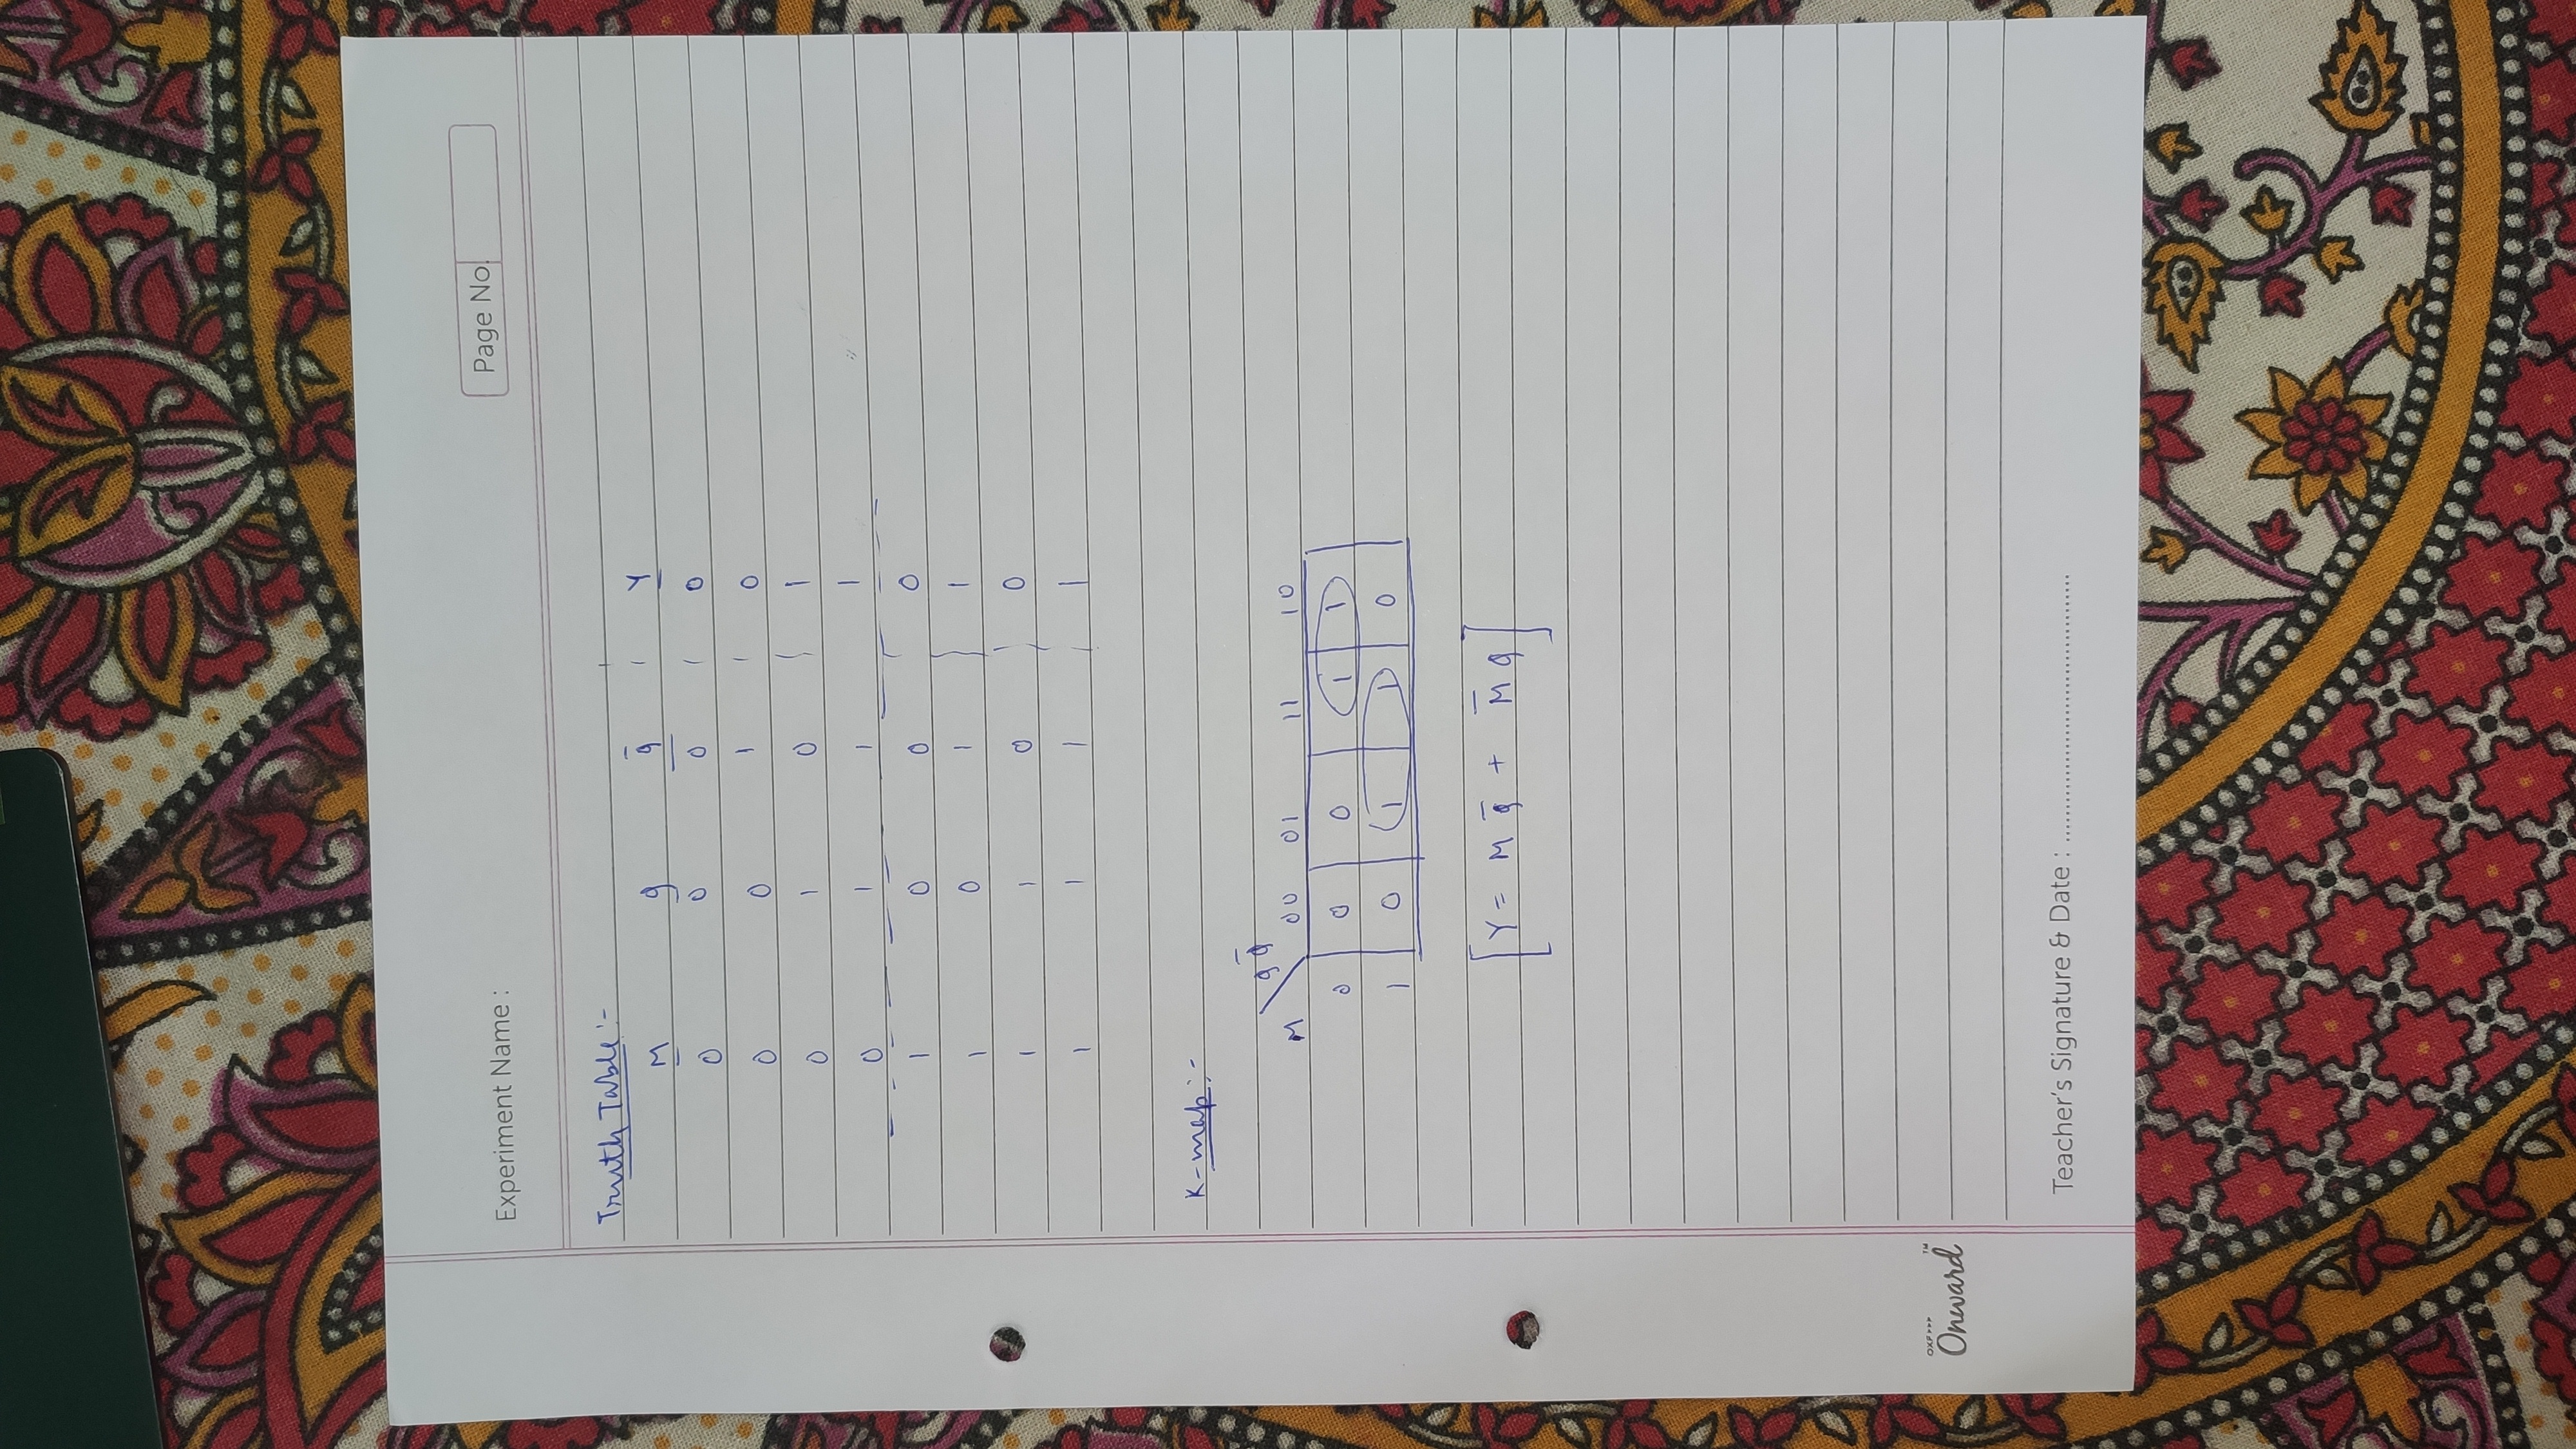 Experiment Name :
Page No.
Truth Table :-
M q q̅ Y
0 0 0 0
0 0 1 0
0 1 0 1
0 1 1 1
1 0 0 0
1 0 1 1
1 1 0 0
1 1 1 1
K-map :-
q q̅
M 00 01 11 10
0 0 0 1 1
1 0 1 1 0
[Y = M q̅ + M̅ q]
OXF>>> TM
Onward
Teacher's Signature & Date : ..........................................